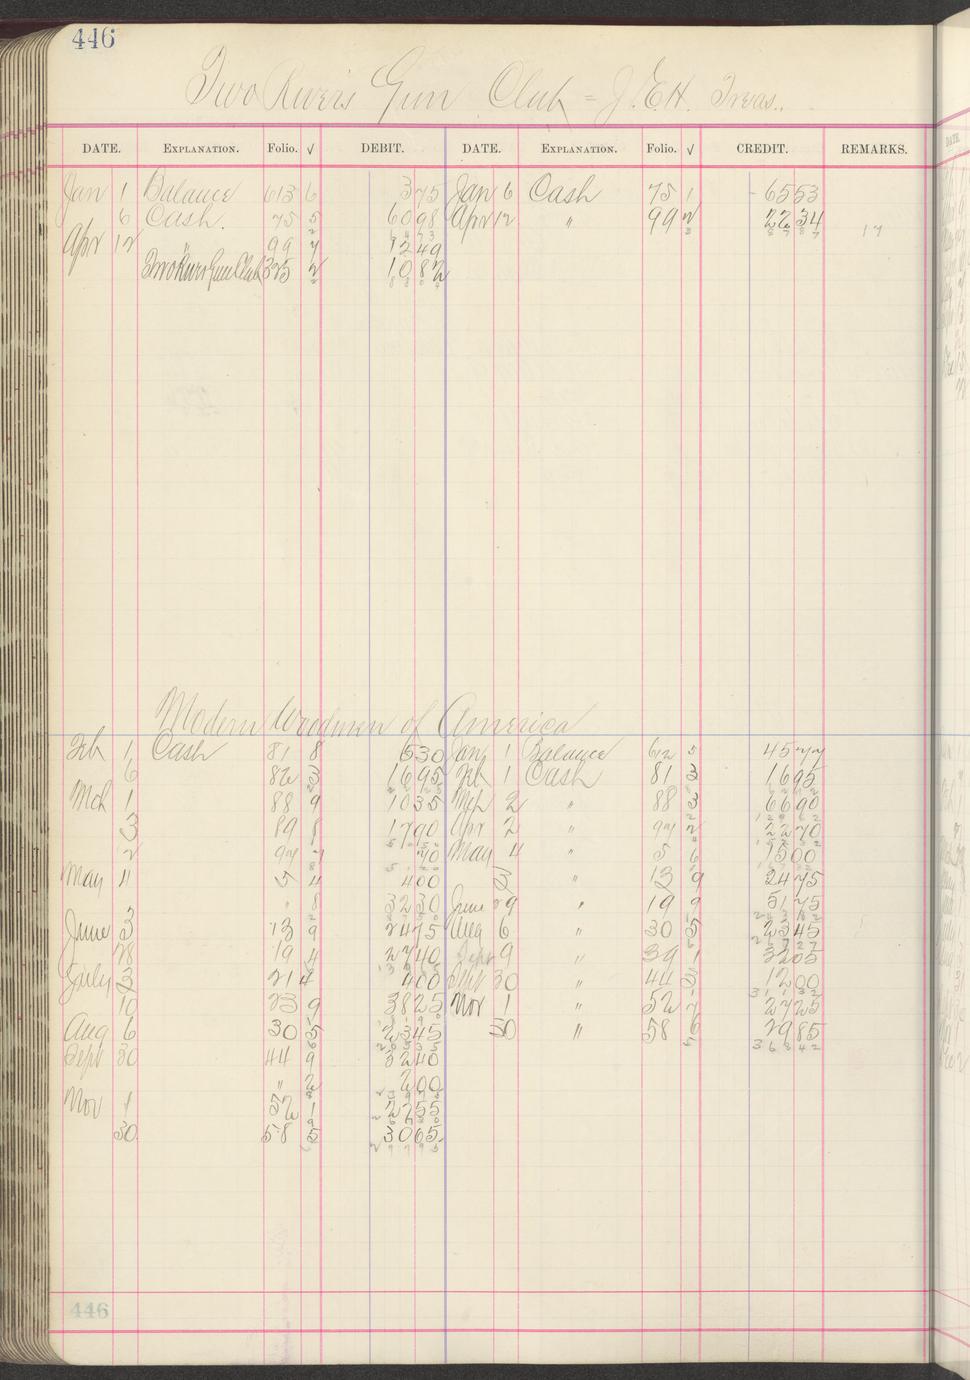 446
Two Rivers Gun Club = J.E.H. Treas.
DATE. EXPLANATION. Folio. √ DEBIT. DATE. EXPLANATION. Folio. √ CREDIT. REMARKS.
Jan 1 Balance 613 6 3 75 Jan 6 Cash 75 1 65 53
6 Cash. 75 5 60 98 Apr 12 " 99 2 22 34 17
Apr 12 " 99 7 12 49
Two Rivers Gun Club 325 2 10 82
Modern Woodmen of America
Feb 1 Cash 81 8 6 30 Jan 1 Balance 612 5 45 77
6 82 3 16 95 Feb 1 Cash 81 3 16 95
Mch 1 88 9 10 35 Mch 2 " 88 3 66 90
3 89 8 17 90 Apr 2 " 97 2 22 70
2 97 7 70 May 4 " 5 6 15 00
May 4 5 4 4 00 3 " 13 9 24 75
" 8 32 30 June 29 " 19 9 51 75
June 3 13 9 24 75 Aug 6 " 30 5 23 45
28 19 4 27 40 Sept 9 " 39 1 32 05
July 3 21 4 4 00 Sept 30 " 44 3 12 00
10 23 9 38 25 Nov 1 " 52 7 27 25
Aug 6 30 5 23 45 30 " 58 6 29 85
Sept 30 44 9 32 40
" 2 2 00
Nov 1 52 1 22 55
30 58 5 30 65
446